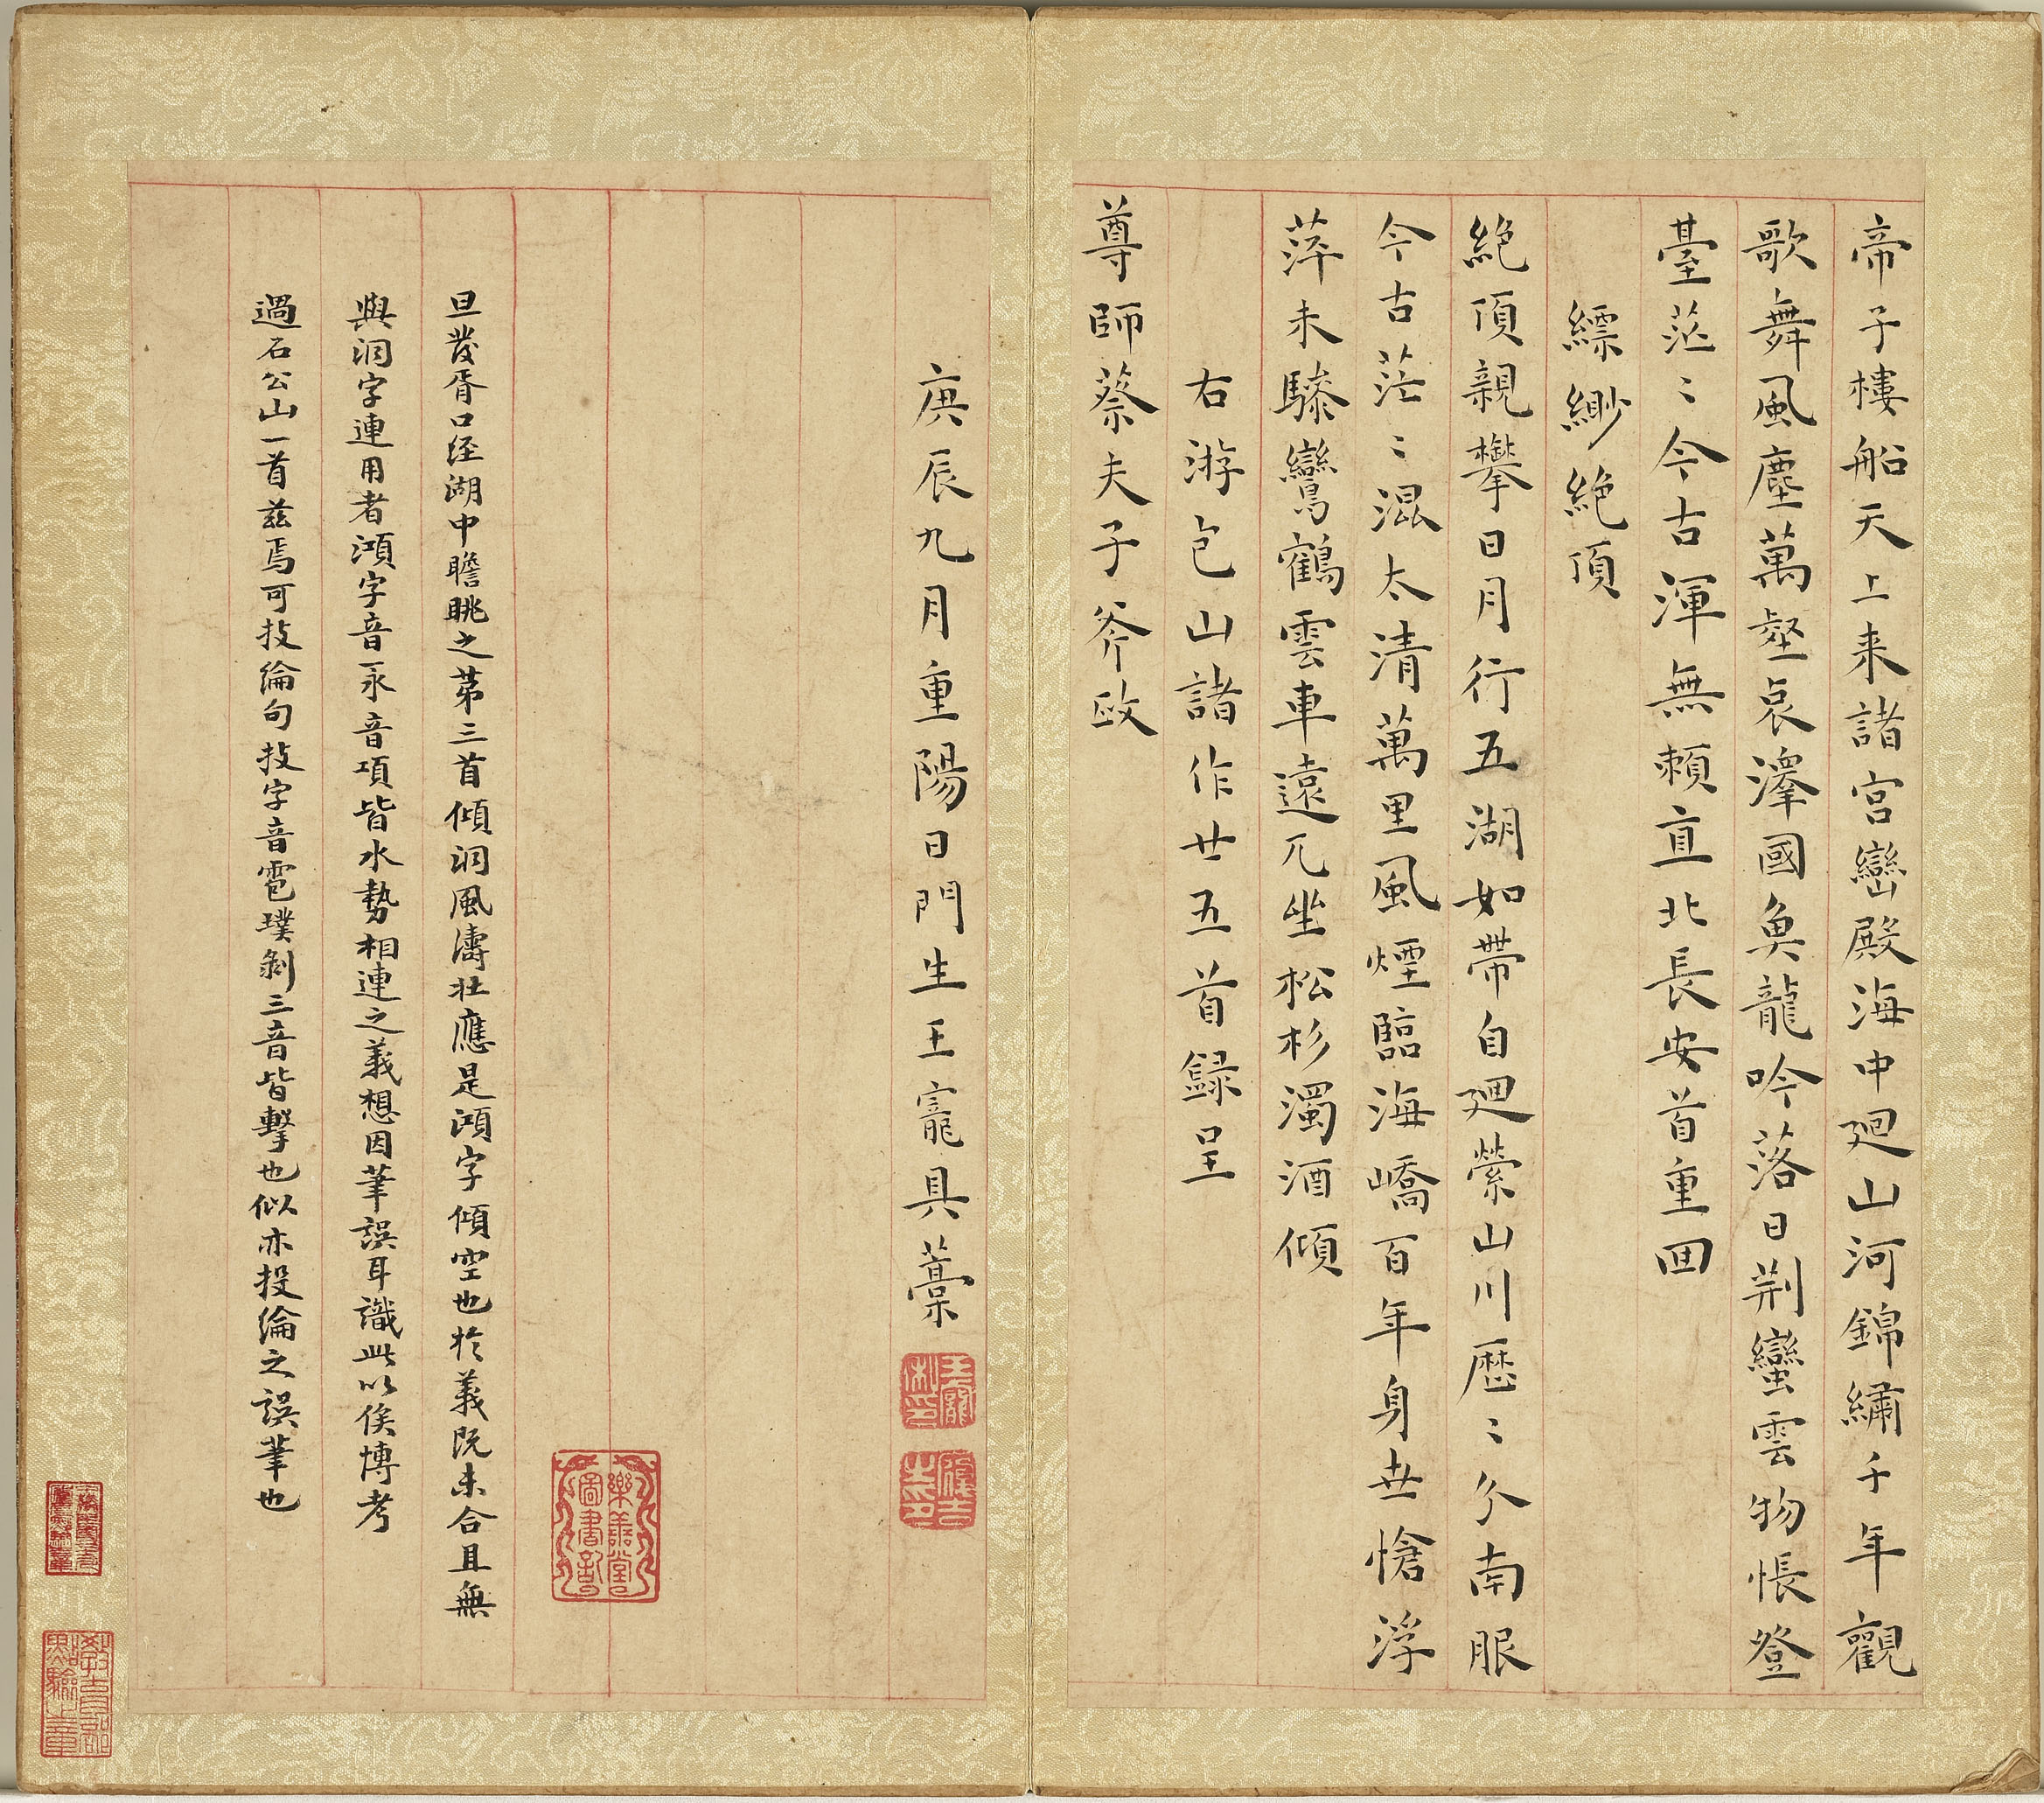 帝子樓船天上来諸宮巒殿海中廻山河錦繡千年觀
歌舞風塵萬壑哀澤國魚龍吟落日荆蠻雲物悵登
臺茫〻今古渾無賴直北長安首重回
縹緲絶頂
絶頂親攀日月行五湖如帶自廻縈山川歷〻分南服
今古茫〻混太清萬里風煙臨海嶠百年身世愴浮
萍未驂鸞鶴雲車遠兀坐松杉濁酒傾
右游包山諸作廿五首録呈
尊師蔡夫子斧政
庚辰九月重陽日門生王寵具藁
王寵私印
履吉印
樂善堂圖書記
旦發胥口經湖中瞻眺之第三首傾洞風濤壮應是澒字傾空也於義既未合且無
與洞字連用者澒字音永音項皆水勢相連之義想因筆誤耳識此以俟博考
過石公山一首兹焉可技綸句技字音雹璞剝三音皆擊也似亦投綸之誤筆也